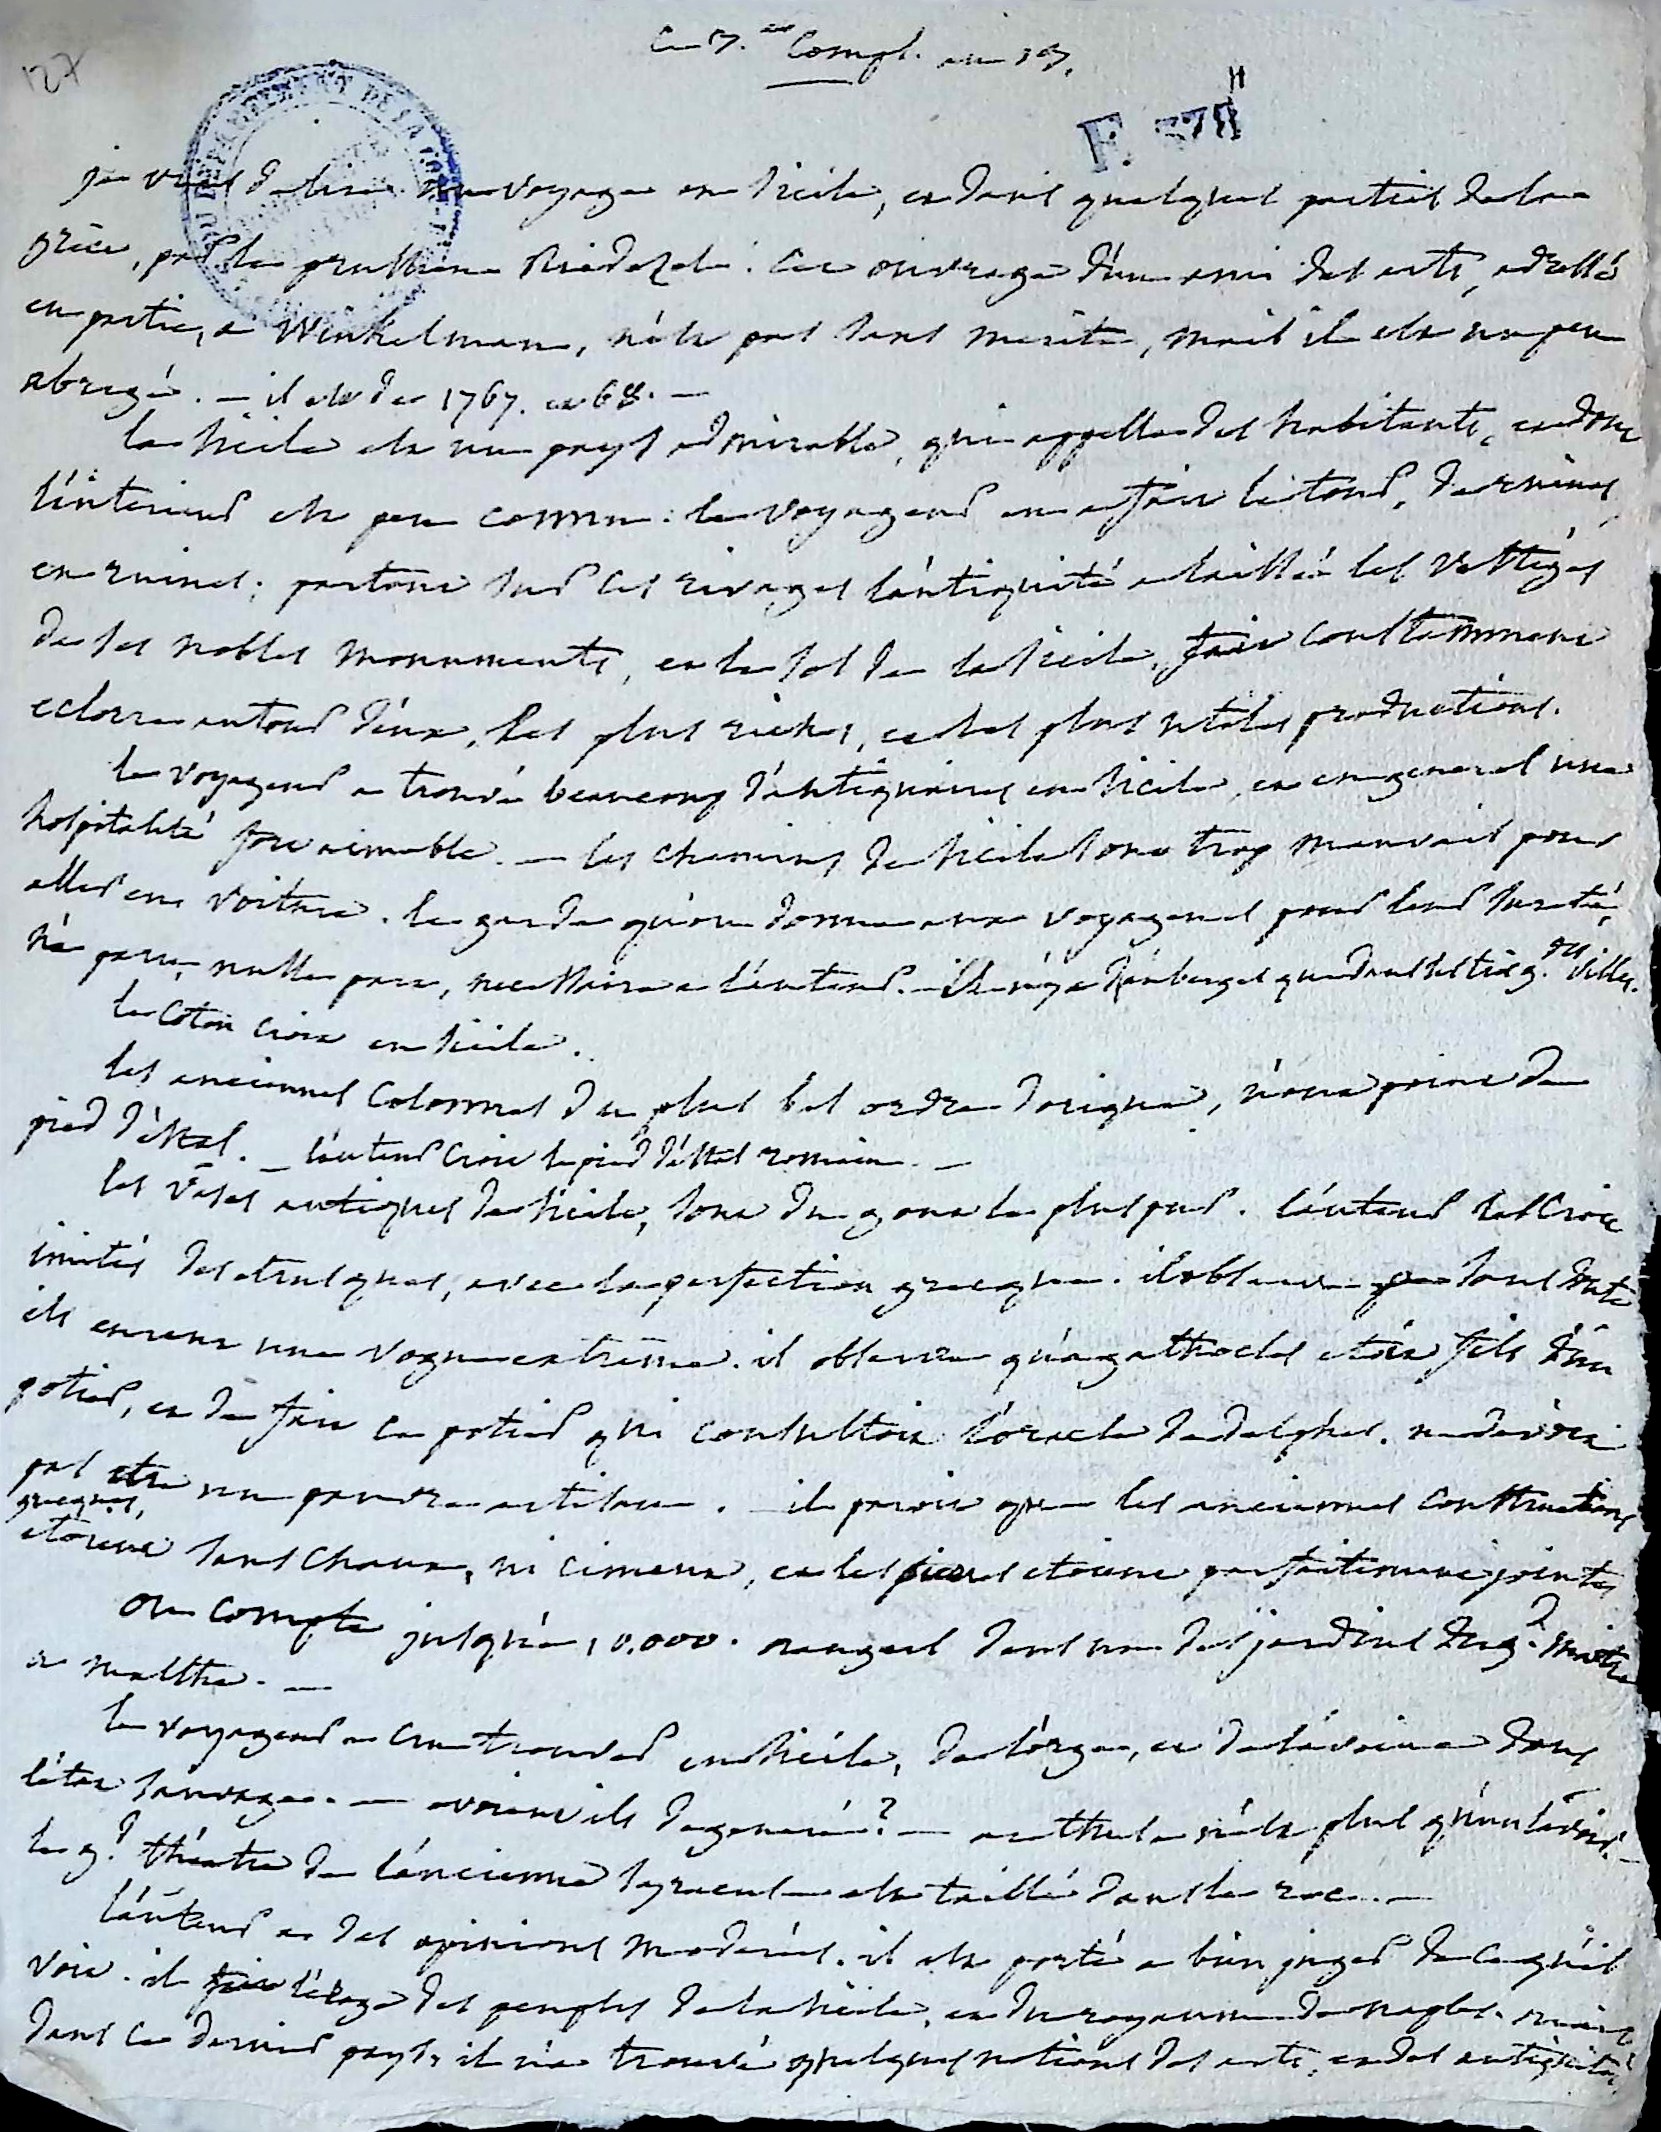 127
Ce 5.me Compl. an 13.
F. 378
je viens de lire un voyage en Sicile, et dans quelques parties de la
grèce, par le prussien Riedezel. Cet ouvrage d'un ami des arts, adressé
en partie, a Winkelmann, n'est pas sans merite, mais il est un peu
abregé. — il est de 1767. et 68. —
la Sicile est un pays admirable, qui appelle des habitants, et dont
l'interieur est peu connu. le voyageur en a fait le tour, de ruines
en ruines; partout sur ces rivages l'antiquité a laissé les vestiges
de ses nobles monuments, et le sol de la Sicile, fait constamment
eclorre autour d'eux, les plus riches, et les plus utiles productions.
le voyageur a trouvé beaucoup d'antiquaires en Sicile, et en general une
hospitalité fort aimable. — les chemins de Sicile sont trop mauvais pour
aller en voiture. la garde qu'on donne aux voyageurs pour leur sureté,
n'a paru, nulle part, necessaire a l'auteur. — il n'y a d'auberges que dans les trois g.des villes.
le Coton croit en Sicile.
les anciennes Colonnes du plus bel ordre dorique, n'ont point de
pied d'estal. — l'auteur croit le pied d'estal romain. —
les vases antiques de Sicile, sont du gout le plus pur. l'auteur les croit
imités des etrusques, avec la perfection grecque. il observe que sans doute
ils eurent une vogue extrême. il observe qu'agathocles etoit fils d'un
potier, et de fait ce potier qui consultoit l'oracle de delphes, ne devoit
pas etre un pauvre artisan. — il paroit que les anciennes constructions
grecques,
etoient sans chaux, ni ciment, et les pierres etoient parfaitement jointes
on compte jusqu'a 10.000. orangers dans un des jardins du g.d maitre
a malthe. —
le voyageur a cru trouver en Sicile, de l'orge, et de l'avoine dans
l'état sauvage. — avoient ils degeneré? — arethuse n'est plus qu'un lavoir. —
le g.d théatre de l'ancienne Syracuse est taillé dans le roc. —
l'auteur a des opinions moderées. il est porté a bien juger de ce qu'il
voit. il fait l'éloge des peuples de la Sicile, et du royaume de naples. mais
dans ce dernier pays, il n'a trouvé quelques notions des arts, et des antiquités,